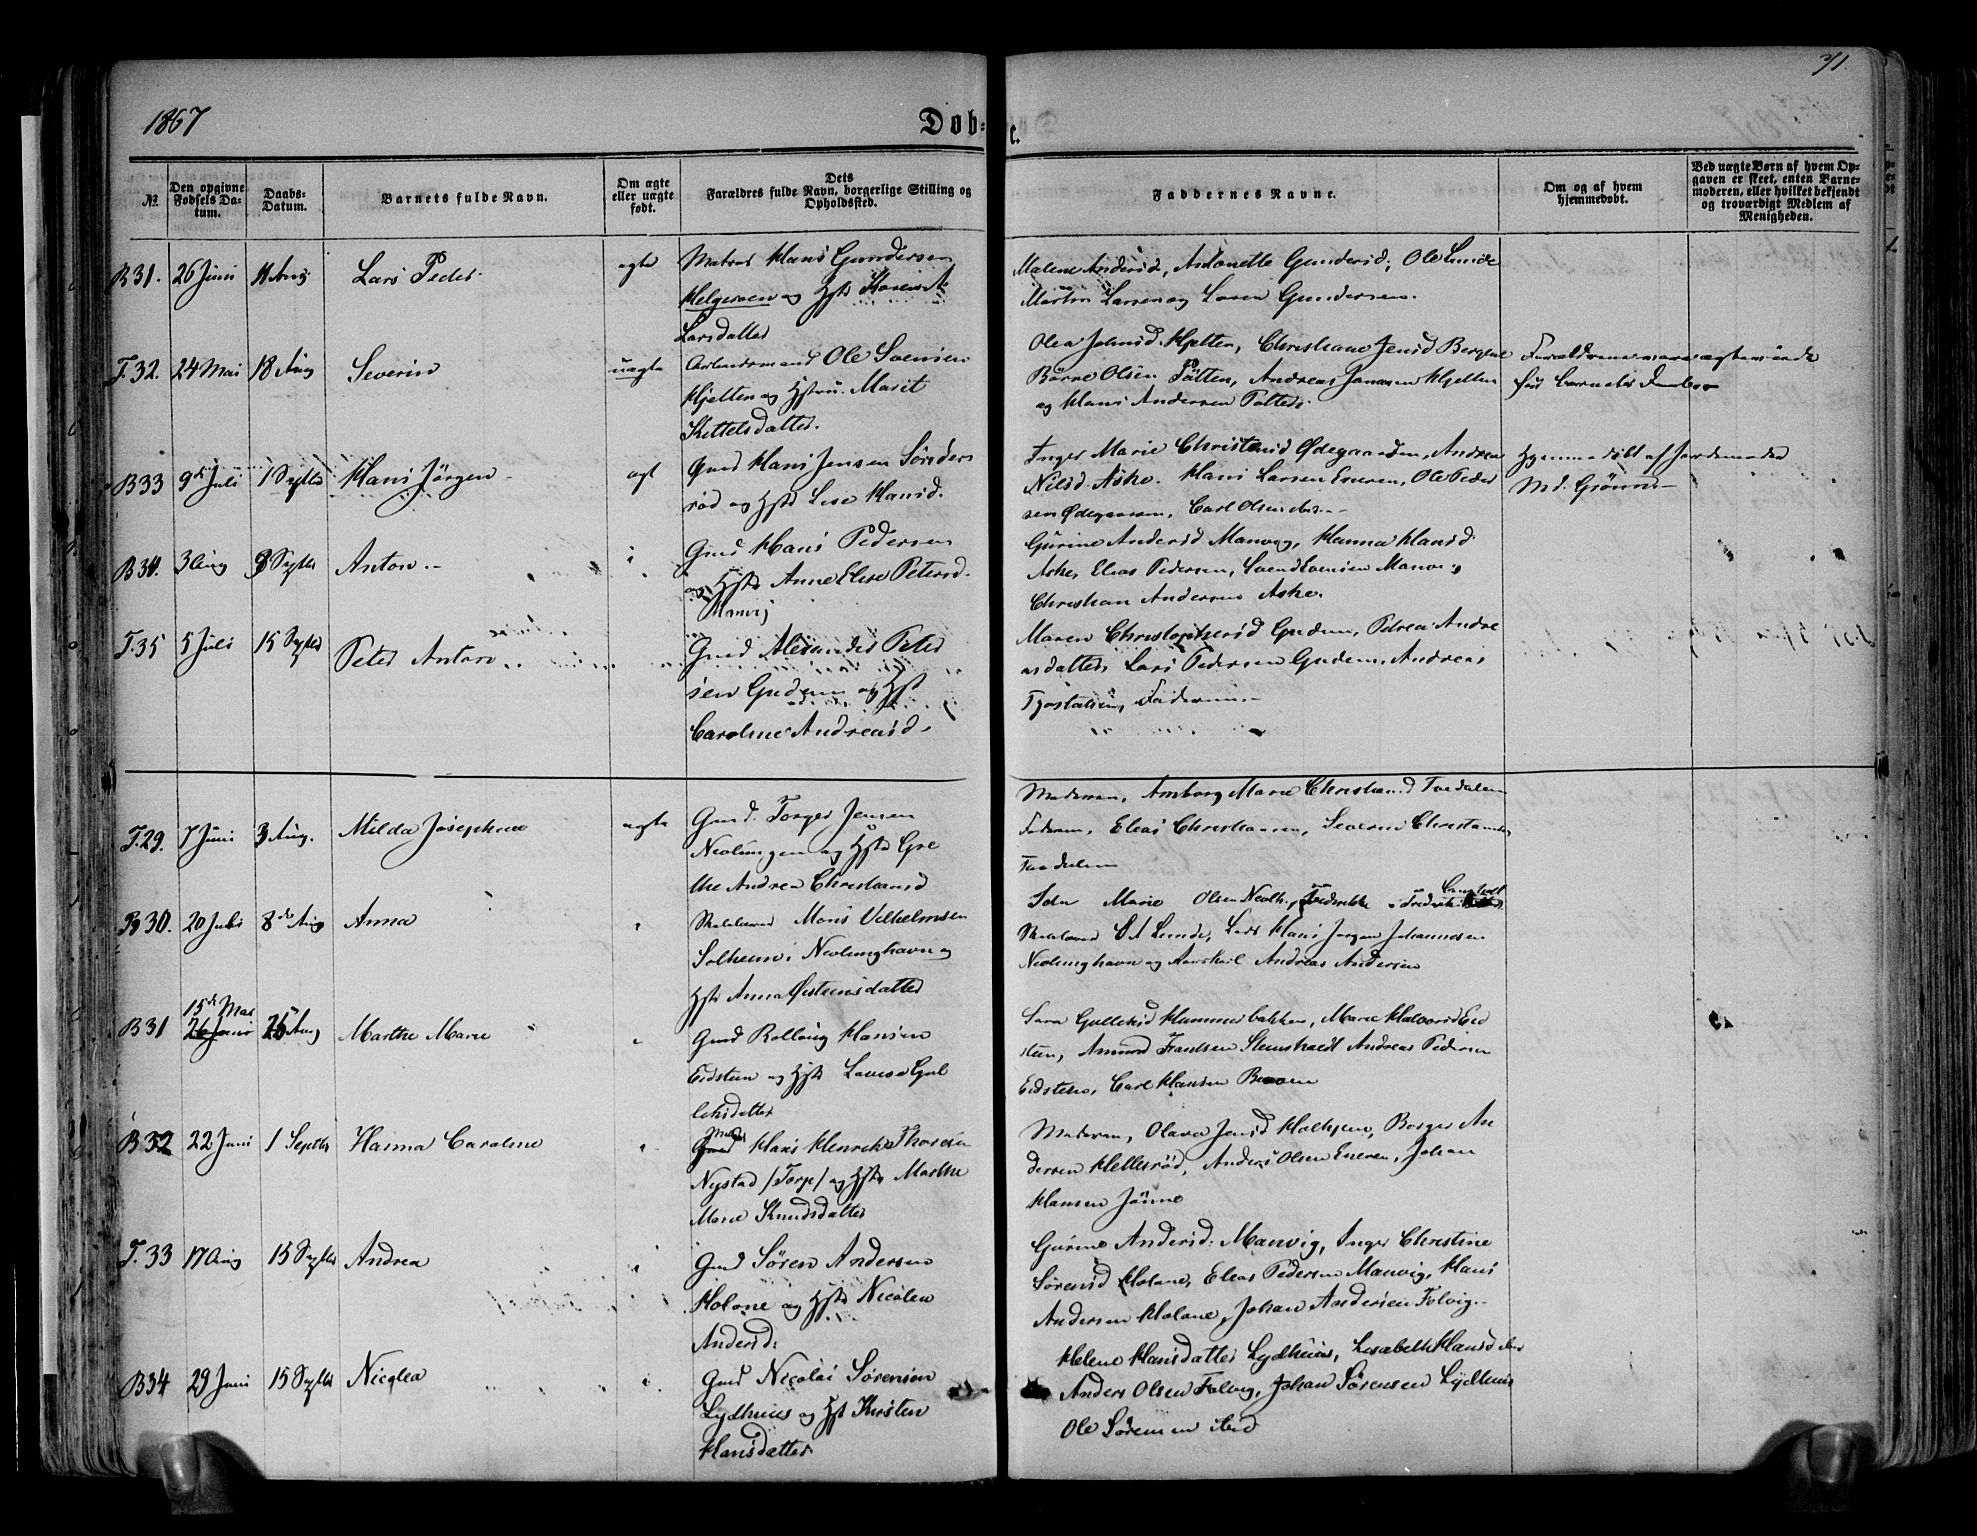 1867
Døb-
e.
71.
№
Den opgivne Fødsels Datum.
Daabs-Datum.
Barnets fulde Navn.
Om ægte eller uægte født.
Dets Forældres fulde Navn, borgerlige Stilling og Opholdsted.
Faddernes Navne.
Om og af hvem hjemmedøbt.
Ved uægte Børn af hvem Opgaven er skeet, enten Barnemoderen, eller hvilket bekjendt og troværdigt Medlem af Menigheden.
B 31. 26 Juni 11 Aug Lars Peder ægte Matros Hans Gundersen
Helgeroen og Hst
Larsdatter
Malene Andersd, Antonette Gundersd, Ole Lunde
Martin Larsen og Soren Gundersen.
T. 32. 24 Mai 18 Aug Severin uægte Arbeidsmand Ole Svensen
Hjelten og Hstru. Marit
Kittelsdatter.
Olea Johnsd. Hjelten, Christiane Jensd Bergene
Børre Olsen Totten, Andreas Hjelten
og Hans Andersen
Forældrene vare ægteviede
før barnets Daab
B 33 9de Juli 1 Septbr Hans Jørgen ægt Gmd Hans Jensen Sønders
rød og Hst Lise Hansd.
Inger Marie Christensd Ødegaarden, Andrea
Nilsd. Aske. Hans Larsen Eneren, Ole Peder
sen Ødegaarden, Carl Olsen
Hjemmedøbt af Jordemoder
Md. Grønn
B 34. 3 Aug 8 Septbr Anton Gmd Hans Pedersen
og Hst Anne Elise Petersd.
Manvig
Gurine Andersd Manvig, Hanna Hansd
Aske, Elias Pedersen, Svend Svensen Manvig
Christian Andersen Aske.
T. 35 5 Juli 15 Septbr Peter Anton Gmd Alexander Peter
sen Gudem og Hst
Caroline Andreasd.
Maren Christophersd Gudem, Petrea Andre
asdatter, Lars Pedersen Gudem, Andreas
Tjostalsen, Faderen
T. 29. 7 Juni 3 Aug. Milda Josephine ægte Gmd. Torger Jensen
Nevlungen og Hst Gre
the Andrea Christiansd
Moderen, Amborg Marie Christiansd Foedalen
Faderen, Elias Christiansen, Severin Christiansen
Foedalen
B 30. 20 Juli 8de Aug Anna Skolelærer Mons Vilhelmsen
Solheim i Nevlunghavn og
Hst Anna Øisteinsdatter
Ida Marie Olsen Nevlh., Frederikke
Skolelærer Lunde, Lods Hans Jørgen Johannesen
Nevlunghavn og Andreas Andersen
B 31 15de Mai 26 Juni 25 Aug Marthe Marie Gmd Rollaug Hansen
Eidsten og Hst Lovise Gul
leksdatter
Sara Gulleksd Hammerbakken, Marie Halvorsd Eid
sten, Amund Frantsen Stenshaldt Andreas Pedersen
Eidsten, Carl Hansen
B 32 22 Juni 1 Septbr Hanna Caroline Hans Henrik Thorsen
Nystad /Torp/ og Hst Marthe
Marie Knudsdatter
Moderen, Olava Jensd Halhjem, Borger An
dersen Hellesrød, Anders Olsen Eneren, Johan
Hansen Jonne
T. 33 17 Aug 15 Septbr Andrea Gmd Søren Andersen
Holane og Hst Nicolea
Andersd:
Gurine Andersd: Manvig, Inger Christine
Sørensd Holane, Elias Pedersen Manvig, Hans
Andersen Holane, Johan Andersen Folvig.
B 34 29 Juni 15 Septbr Nicolea Gmd Nicolai Sørensen
Lydhuus og Hst Kirsten
Hansdatter
Helene Hansdatter Lydhuus, Lisabeth Hansd ibid
Anders Olsen Folvig, Johan Sørensen Lydhuus
Ole Sørensen ibid